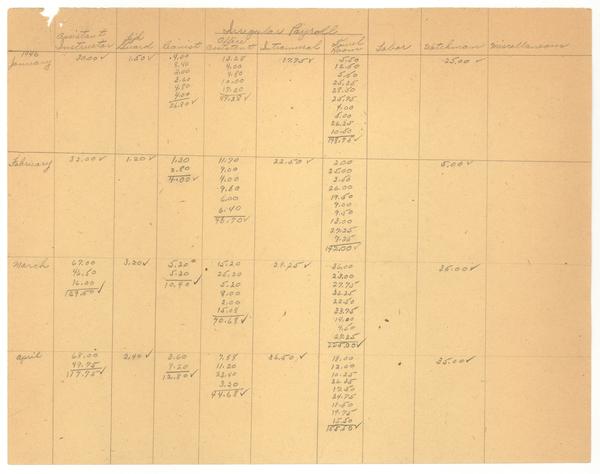 Irregular Payroll
Assistant Instructor Life Guard Pianist Office Assistant Intramural Towel Room Labor Watchman Miscellaneous
1946
January 30.00✓ 1.50✓ 4.00 13.25 17.75✓ 5.50 25.00✓
4.00 12.50
2.00 4.80 5.50
10.00 25.25
4.80 17.20 28.50
4.00 49.25✓ 25.75
26.80✓ 4.00
5.00
26.25
10.50
February 32.00✓ 1.20✓ 1.20 11.70 22.50✓ 2.00 5.00✓
2.80 9.00 25.00
4.00✓ 4.00 3.50
9.60 26.00
6.00 19.50
6.40 9.00
46.70✓ 9.50
13.00
27.25
7.25
142.00✓
March 67.00 3.20✓ 5.20 15.20 27.25✓ 36.00 25.00✓
46.50 5.20 25.20 23.00
16.00 10.40✓ 5.20 27.75
129.50✓ 8.00 32.25
2.00 22.50
15.08 23.75
70.68✓ 14.00
9.50
225.00✓
April 68.00 2.40✓ 3.60 7.88 26.50✓ 18.00 25.00✓
49.75 9.20 11.20 12.00
117.75✓ 12.80✓ 22.40 10.25
3.20 26.25
44.68✓ 17.50
24.75
11.50
19.75
15.50
155.50✓